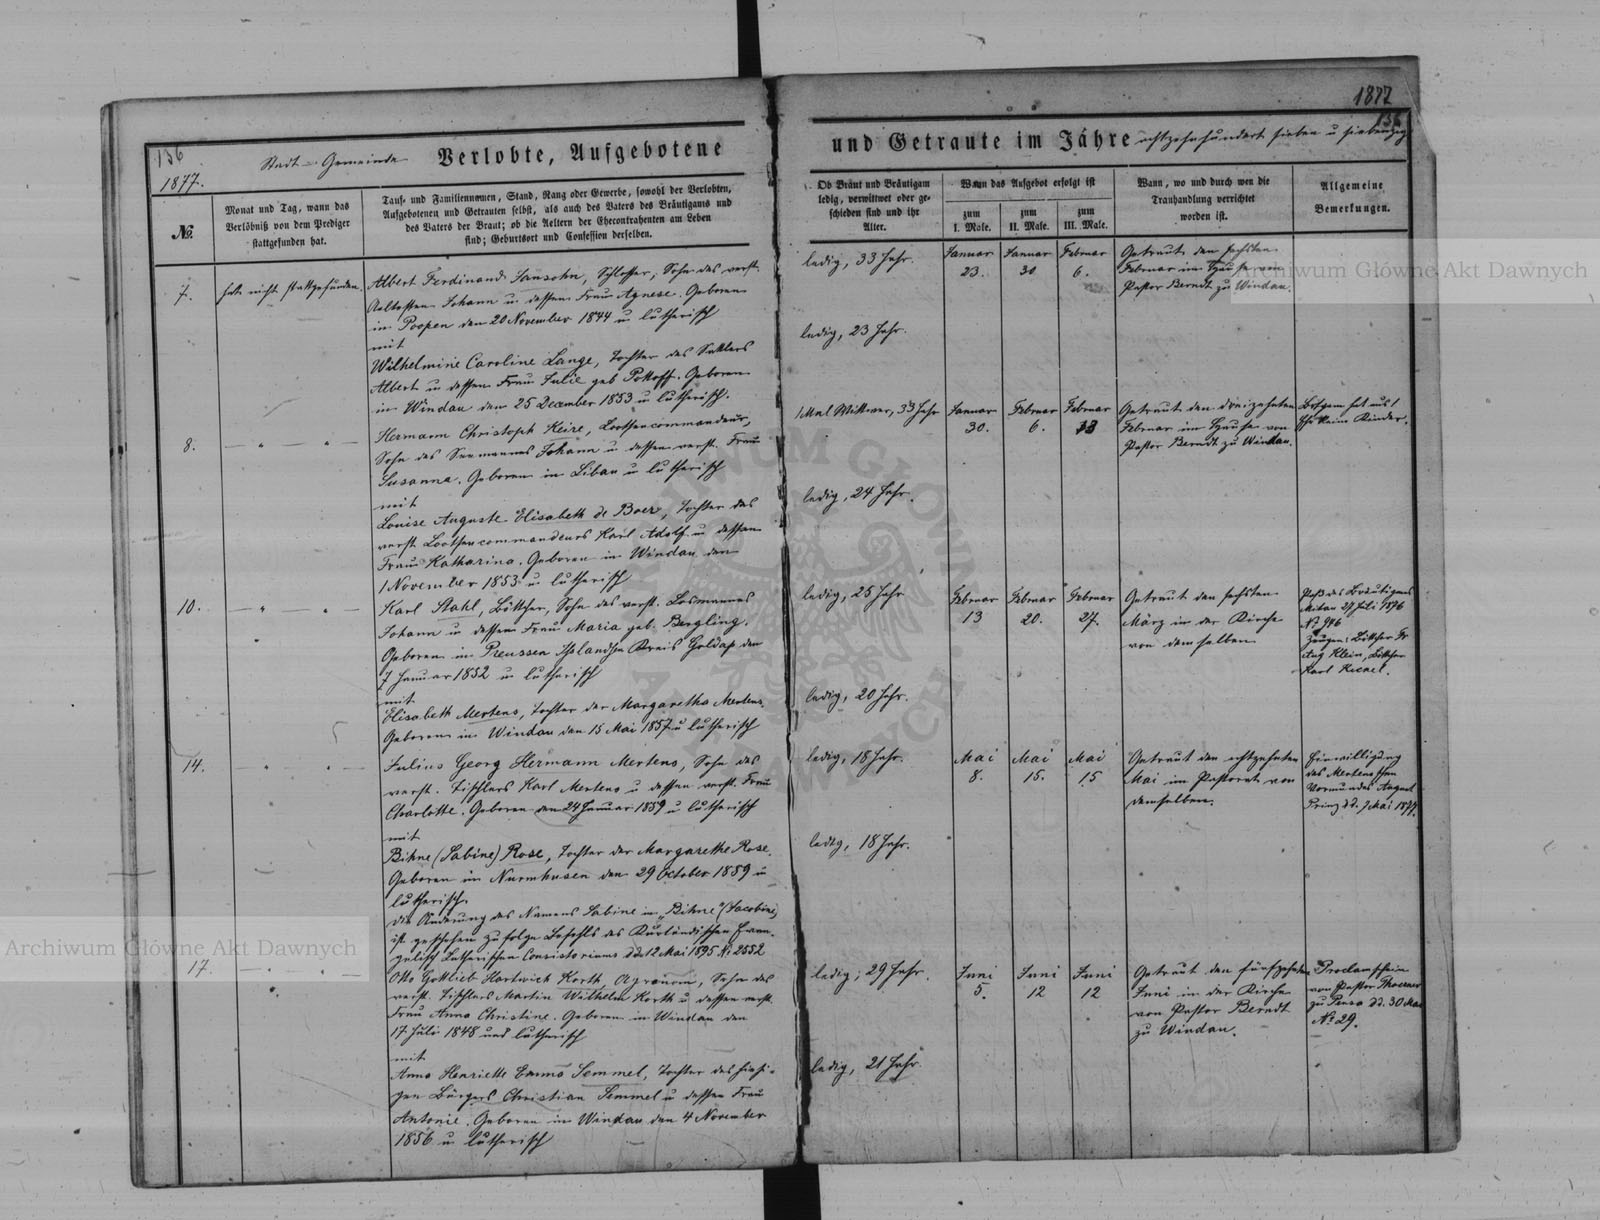 1877
136
136
1877.
Stadt-Gemeinde Verlobte, Aufgebotene
und Getraute im Jahre achtzehnhundert sieben u siebenzig
№.
Monat und Tag, wann das
Verlöbniß von dem Prediger
stattgefunden hat.
Tauf- und Familiennamen, Stand, Rang oder Gewerbe, sowohl der Verlobten,
Aufgebotenen und Getrauten selbst, als auch des Vaters des Bräutigams und
des Vaters der Braut; ob die Aeltern der Ehecontrahenten am Leben
sind; Geburtsort und Confession derselben.
Ob Braut und Bräutigam
ledig, verwittwet oder ge-
schieden sind und ihr
Alter.
Wann das Aufgebot erfolgt ist
zum
I. Male.
zum
II. Male.
zum
III. Male.
Wann, wo und durch wen die
Trauhandlung verrichtet
worden ist.
Allgemeine
Bemerkungen.
7.
hat nicht stattgefunden.
Albert Ferdinand Jansohn, Schlosser, Sohn des verst.
Johann u dessen Frau Agnese. Geboren
in Poopen den 20 November 1844 u lutherisch
mit
Wilhelmine Caroline Lange, Tochter des Sattlers
Albert u dessen Frau Julie geb Pottoff. Geboren
in Windau den 25 December 1853 u lutherisch.
ledig, 33 Jahr.
ledig, 23 Jahr.
Januar
23.
Januar
30
Februar
6.
Getraut den sechsten
Februar im Hause von
Pastor Berndt zu Windau.
8.
Hermann Christoph Keire, Lootsencommandeur,
Sohn des Seemannes Johann u dessen verst. Frau
Susanna. Geboren in Libau u lutherisch
mit
Louise Auguste Elisabeth de Boer, Tochter des
verst. Lootsencommandeurs Karl Adolf u dessen
Frau Katharina. Geboren in Windau den
1 November 1853 u lutherisch
1 Mal Wittwer, 33 Jahr
ledig, 24 Jahr.
Januar
30.
Februar
6.
Februar
13
Getraut den dreizehnten
Februar im Hause von
Pastor Berndt zu Windau.
Bräutgam hat aus 1
Ehe keine Kinder.
10.
Karl Stahl, Böttcher, Sohn des verst. Losmannes
Johann u dessen Frau Maria geb. Bergling.
Geboren in Preussen Kreis Goldap den
7 Januar 1852 u lutherisch
mit
Elisabeth Mertens, Tochter der Margaretha Mertens
Geboren in Windau den 15 Mai 1857 u lutherisch
ledig, 25 Jahr
ledig, 20 Jahr.
Februar
13
Februar
20.
Februar
27.
Getraut den sechsten
März in der Kirche
von demselben
Paß des Bräutigams
Mitau 27 Juli 1876
№ 946
Zeugen: Böttcher Fr
Aug Klein, Böttcher
Karl
14.
Julius Georg Hermann Mertens, Sohn des
verst. Tischlers Karl Mertens u dessen verst. Frau
Charlotte. Geboren den 24 Januar 1859 u lutherisch
mit
Bihne (Sabine) Rose, Tochter der Margarethe Rose.
Geboren in Nurmhusen den 29 October 1859 u
lutherisch.
Die Änderung des Namens Sabine in „Bihne" (Jacobine)
ist geschehen zufolge Befehls des Kurländischen Evan-
gelisch Lutherischen Consistoriums dd 12 Mai 1895 № 2552
ledig, 18 Jahr.
ledig, 18 Jahr.
Mai
8.
Mai
15.
Mai
15
Getraut den achtzehnten
Mai im Pastorat von
demselben.
Einwilligung
des Mertensschen
Vormundes August
Prinz dd. 7 Mai 1877.
17.
Otto Gottlieb Hartwich Korth, Agronom, Sohn des
verst. Tischlers Martin Wilhelm Korth u dessen verst.
Frau Anna Christine. Geboren in Windau den
17 Juli 1848 und lutherisch
mit
Anna Henriette Emma Semmel, Tochter des hiesi-
gen Bürgers Christian Semmel u dessen Frau
Antonie. Geboren in Windau den 4 November
1856 u lutherisch
ledig, 29 Jahr.
ledig, 21 Jahr
Juni
5.
Juni
12
Juni
12
Getraut den fünfzehnten
Juni in der Kirche
von Pastor Berndt
zu Windau.
Proclamschein
von Pastor
zu Pensa dd. 30 Mai
№ 29.
Archiwum Główne Akt Dawnych
Archiwum Główne Akt Dawnych
ARCHIWUM GŁÓWNE AKT DAWNYCH